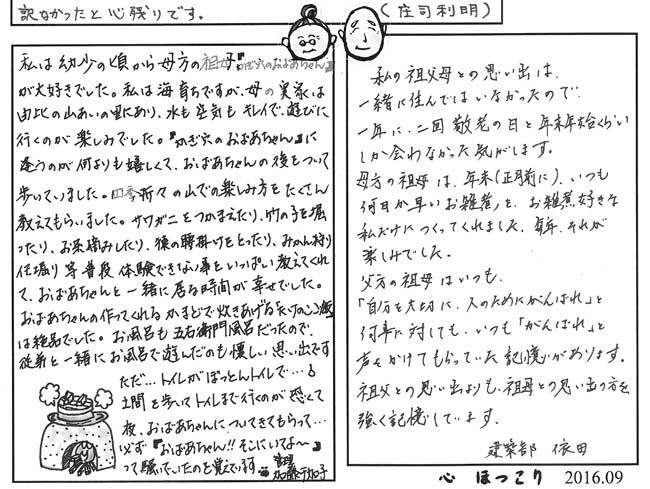 訳なかったと心残りです。
(庄司利明)
私は幼少の頃から母方の祖母『かぎ穴のおばあちゃん』
が大好きでした。私は海育ちですが、母の実家は
由比の山あいの里にあり、水も空気もキレイで、遊びに
行くのが楽しみでした。『かぎ穴のおばあちゃん』に
逢うのが何よりも嬉しくて、おばあちゃんの後をついて
歩いていました。四季折々の山での楽しみ方をたくさん
教えてもらいました。サワガニをつかまえたり、竹の子を掘
ったり、お茶摘みしたり、猿の腰掛けをとったり、みかん狩り
等普段体験できない事をいっぱい教えてくれ
て、おばあちゃんと一緒に居る時間が幸せでした。
おばあちゃんの作ってくれるかまどで炊きあげるたけのこご飯
は絶品でした。お風呂も五右衛門風呂だったので、
従弟と一緒にお風呂で遊んだのも懐しい思い出です
ただ…トイレがぼっとんトイレで…
土間を歩いてトイレまで行くのが恐くて
夜、おばあちゃんについてきてもらって…
必ず『おばあちゃん!!そこにいてよ〜』
って騒いでいたのを覚えています。
加藤千加子
私の祖父母との思い出は、
一緒に住んではいなかったので、
一年に、二回敬老の日と年末年始くらい
しか会わなかった気がします。
母方の祖母は、年末(正月前に)、いつも
何日か早いお雑煮を、お雑煮好きな
私だけにつくってくれました。毎年、それが
楽しみでした。
父方の祖母はいつも、
「自分を大切に、人のためにがんばれ」と
何事に対しても、いつも「がんばれ」と
声をかけてもらっていた記憶があります。
祖父との思い出よりも、祖母との思い出の方を
強く記憶しています。
建築部 依田
心 ほっこり 2016.09